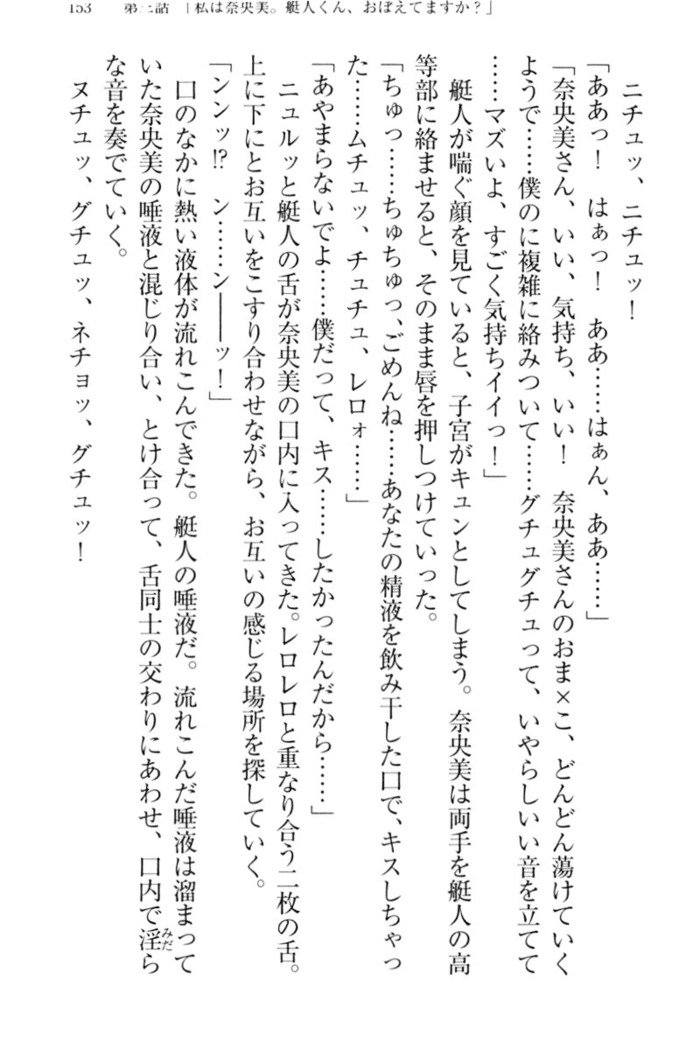 153　第二話　「私は奈央美。艇人くん、おぼえてますか？」
ニチュッ、ニチュッ！
「ああっ！　はぁっ！　ああ……はぁん、ああ……」
「奈央美さん、いい、気持ち、いい！　奈央美さんのおま×こ、どんどん蕩けていく
ようで……僕のに複雑に絡みついて……グチュグチュって、いやらしいい音を立てて
……マズいよ、すごく気持ちイイっ！」
艇人が喘ぐ顔を見ていると、子宮がキュンとしてしまう。奈央美は両手を艇人の高
等部に絡ませると、そのまま唇を押しつけていった。
「ちゅっ……ちゅちゅっ、ごめんね……あなたの精液を飲み干した口で、キスしちゃっ
た……ムチュッ、チュチュ、レロォ……」
「あやまらないでよ……僕だって、キス……したかったんだから……」
ニュルッと艇人の舌が奈央美の口内に入ってきた。レロレロと重なり合う二枚の舌。
上に下にとお互いをこすり合わせながら、お互いの感じる場所を探していく。
「ンンッ⁉　ン……ン――ッ！」
口のなかに熱い液体が流れこんできた。艇人の唾液だ。流れこんだ唾液は溜まって
いた奈央美の唾液と混じり合い、とけ合って、舌同士の交わりにあわせ、口内で淫みだら
な音を奏でていく。
ヌチュッ、グチュッ、ネチョッ、グチュッ！